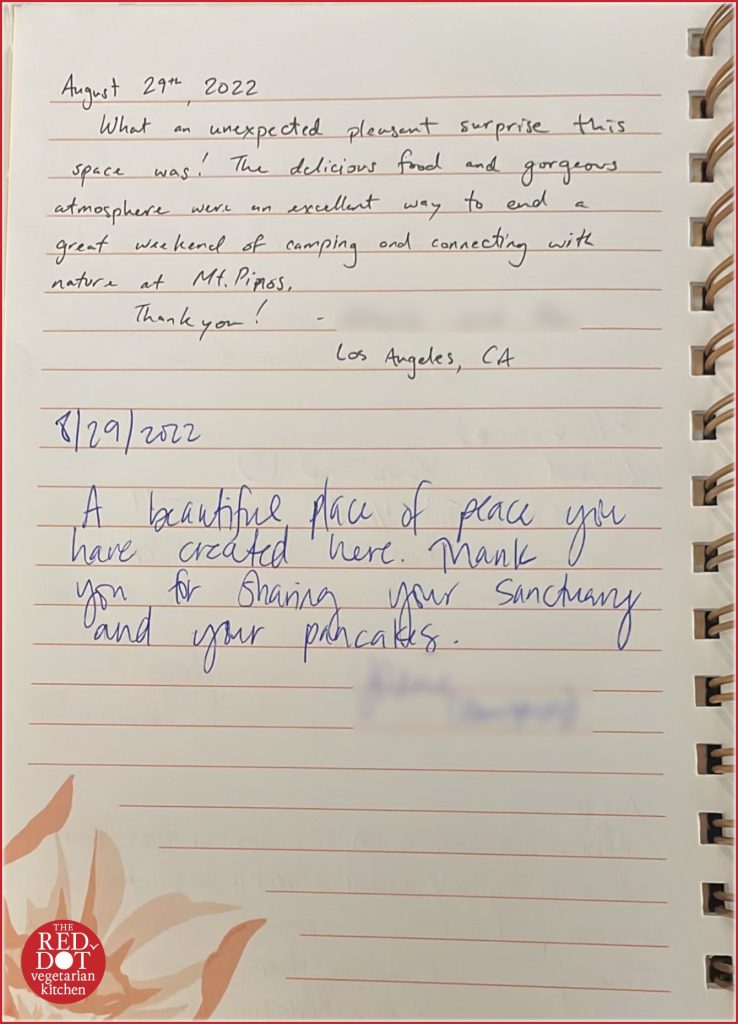 August 29th, 2022
What an unexpected pleasant surprise this
space was! The delicious food and gorgeous
atmosphere were an excellent way to end a
great weekend of camping and connecting with
nature at Mt. Pinos.
Thank you! -
Los Angeles, CA
8/29/2022
A beautiful place of peace you
have created here. Thank
you for sharing your sanctuary
and your pancakes.
THE
RED
DOT
vegetarian
kitchen